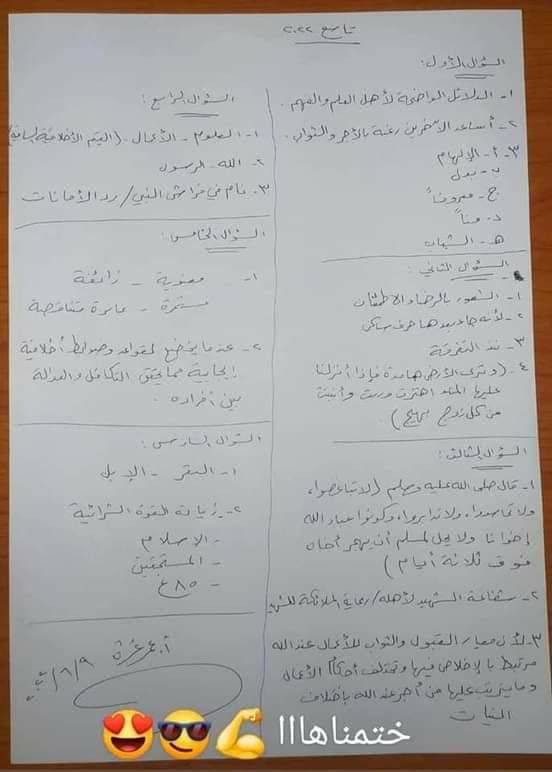 تاسع ٢٠٢٢
السؤال الأول:
١- الدلائل الواضحة لأهل العلم والفهم.
٢- أساعد الآخرين رغبة بالأجر والثواب.
٣- أ- الإلهام
ب- بدل
ج- معروفاً
د- منّاً
هـ- الشهاب
السؤال الثاني:
١- الشعور بالرضا والاطمئنان
٢- لأنه جاء بعدها حرف ساكن
٣- نبذ التفرقة
٤- (وترى الأرض هامدة فإذا أنزلنا
عليها الماء اهتزت وربت وأنبتت
من كل زوج بهيج).
السؤال الثالث:
١- قال صلى الله عليه وسلم (لا تباغضوا،
ولا تحاسدوا، ولا تدابروا، وكونوا عباد الله
إخوانا ولا يحل لمسلم أن يهجر أخاه
فوق ثلاثة أيام)
٢- شفاعة الشهيد لأهله/ رعاية الملائكة للشهيد
٣- لأن معيار القبول والثواب للأعمال عند الله
مرتبط بالإخلاص فيها وتختلف أحكام الأعمال
وما يترتب عليها من أجر عند الله باختلاف
النيات
السؤال الرابع:
١- العلوم - الأعمال - (القيم الأخلاقية السامية)
٢- الله - الرسول
٣- نام في فراش النبي/ رد الأمانات
السؤال الخامس:
١- معنوية - زائفة
مستمرة - عابرة متناقصة
٢- عندما يخضع لقواعد وضوابط أخلاقية
إيجابية مما يحقق التكافل والعدالة
بين أفراده.
السؤال السادس:
١- البقر - الإبل
٢- زيادة القوة الشرائية
- الإسلام
- المستحقين
- ٨٥ غ
أ. عمر غرة
٢٠٢٢/٦/٩
ختمناهااا 💪😎😍